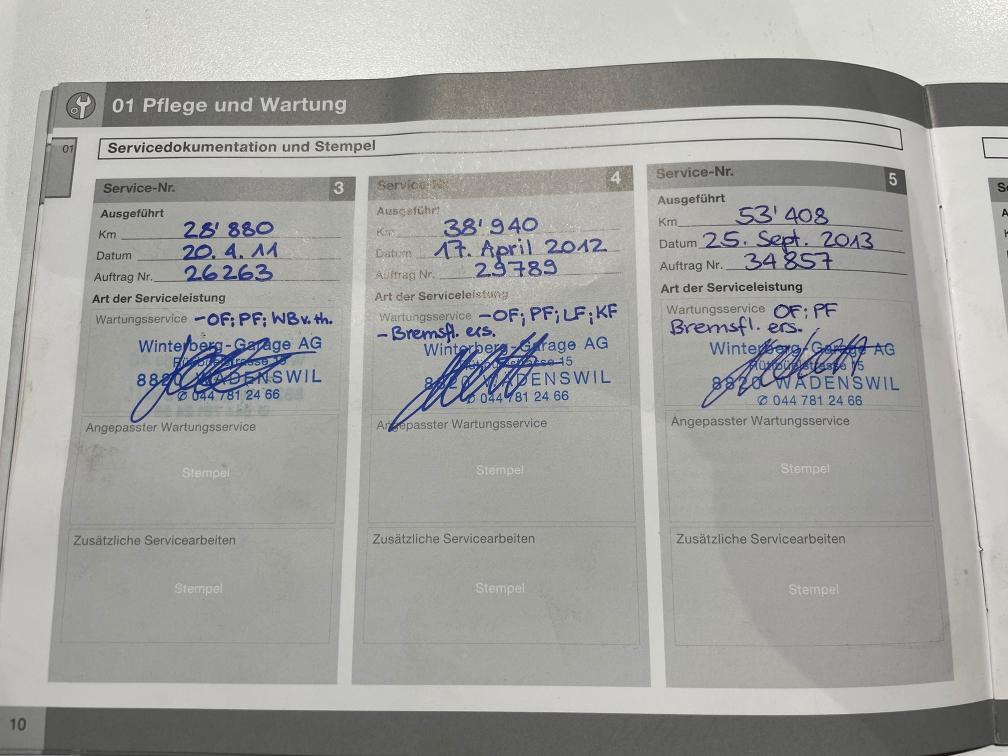 01 Pflege und Wartung
01
Servicedokumentation und Stempel
Service-Nr. 3
Ausgeführt
Km 28'880
Datum 20.4.11
Auftrag Nr. 26263
Art der Serviceleistung
Wartungsservice -OF; PF; WBv.th.
Winterberg-Garage AG
8820 WÄDENSWIL
✆ 044 781 24 66
Angepasster Wartungsservice
Stempel
Zusätzliche Servicearbeiten
Stempel
Service-Nr. 4
Ausgeführt
Km 38'940
Datum 17. April 2012
Auftrag Nr. 29789
Art der Serviceleistung
Wartungsservice -OF; PF; LF; KF
-Bremsfl. ers.
Winterberg-Garage AG
8820 WÄDENSWIL
✆ 044 781 24 66
Angepasster Wartungsservice
Stempel
Zusätzliche Servicearbeiten
Stempel
Service-Nr. 5
Ausgeführt
Km 53'408
Datum 25. Sept. 2013
Auftrag Nr. 34857
Art der Serviceleistung
Wartungsservice OF; PF
Bremsfl. ers.
Winterberg-Garage AG
8820 WÄDENSWIL
✆ 044 781 24 66
Angepasster Wartungsservice
Stempel
Zusätzliche Servicearbeiten
Stempel
10